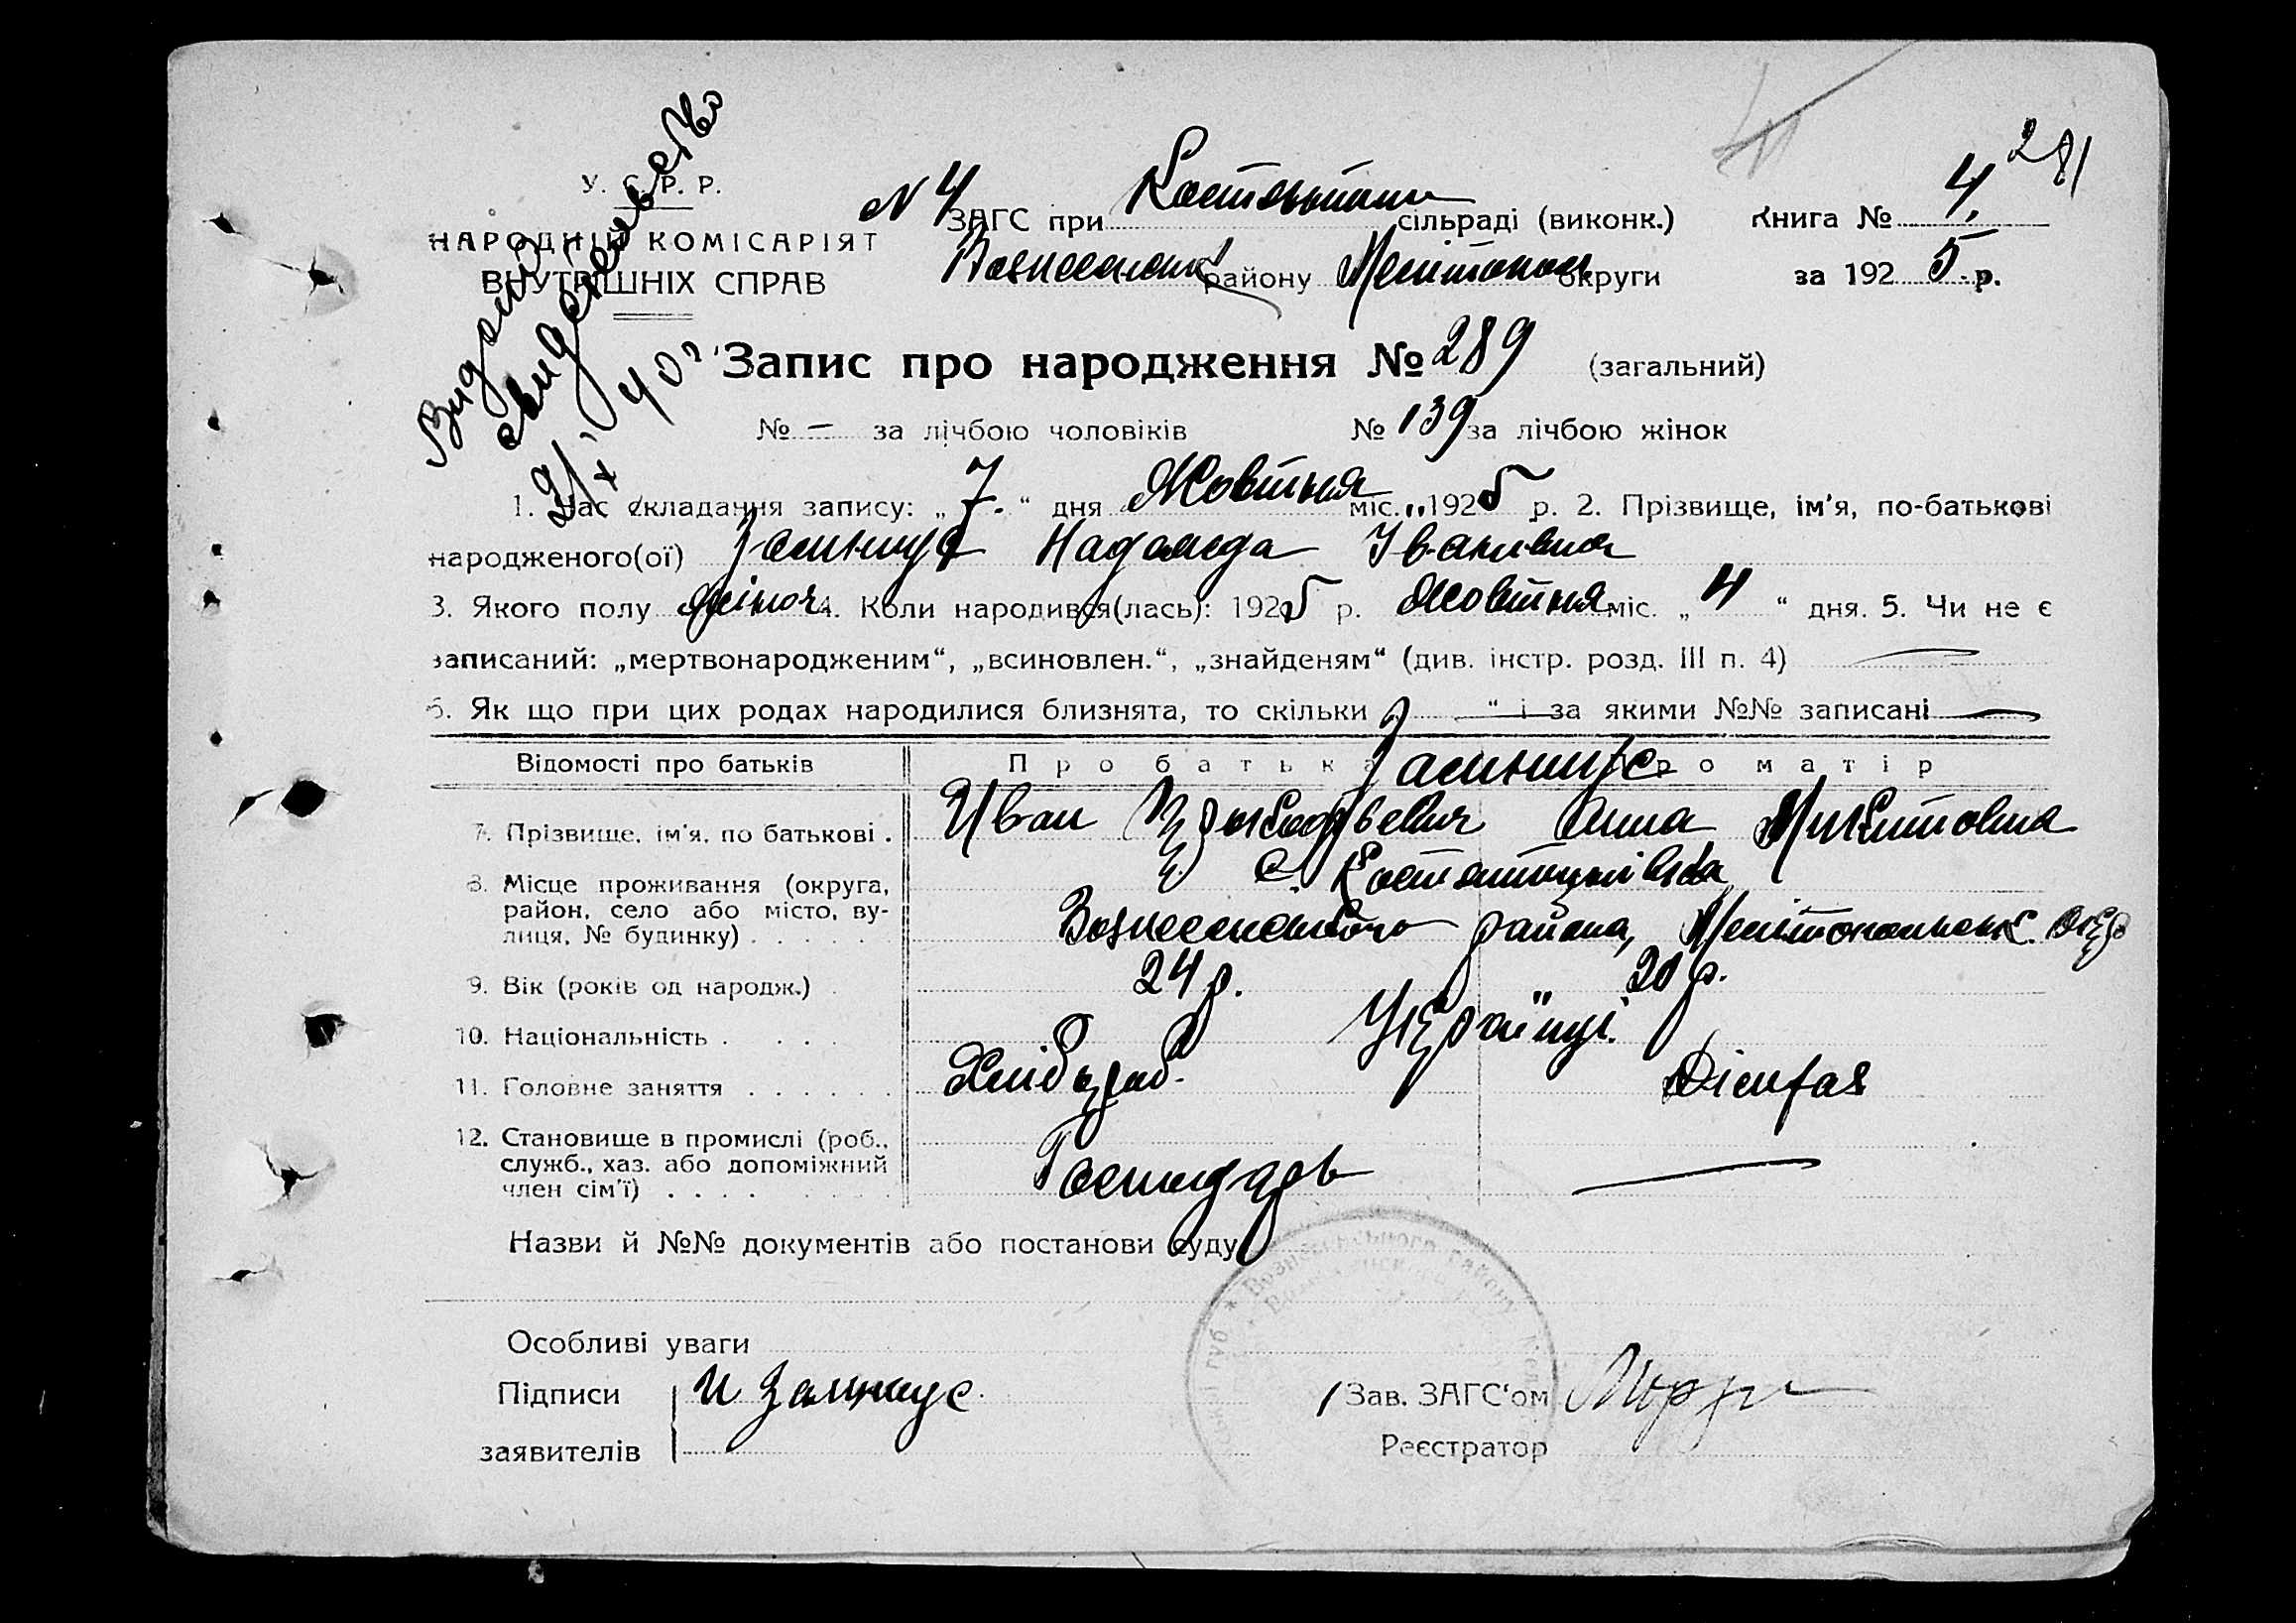 281
У. С. Р. Р.
НАРОДНІЙ КОМІСАРІЯТ
ВНУТРІШНІХ СПРАВ
N 4 ЗАГС при сільраді (виконк.) Книга № 4.
району округи за 1925 р.
Видано
свидетельство
40 г
Запис про народження № 289 (загальний)
№ – за лічбою чоловіків № 139 за лічбою жінок
1. Час складання запису: „ 7. “ дня Жовтня міс. 1925 р. 2. Прізвище, ім'я, по-батькові
народженого(ої) Надежда Іванівна
3. Якого полу жіноч. 4. Коли народився(лась): 1925 р. Жовтня міс. „ 4 “ дня. 5. Чи не є
записаний: „мертвонародженим“, „всиновлен.“, „знайденям“ (див. інстр. розд. III п. 4)
6. Як що при цих родах народилися близнята, то скільки “ і за якими №№ записані
Відомості про батьків Про батька Про матір
7. Прізвище, ім'я, по батькові . Иван Анна Микитовна
8. Місце проживання (округа,
район, село або місто, ву-
лиця, № будинку) . . . . . . с. Костянтинівка
Вознесенського района, Мелітопольськ. окр
9. Вік (років од народж.) . 24 р. 20 р.
10. Національність . . . . Українці.
11. Головне заняття . . . . . . Хлібороб.
12. Становище в промислі (роб.,
служб., хаз. або допоміжний
член сім'ї) . . . . Господарь —
Назви й №№ документів або постанови суду
Особливі уваги
Підписи И
заявителів
Зав. ЗАГС'ом
Реєстратор